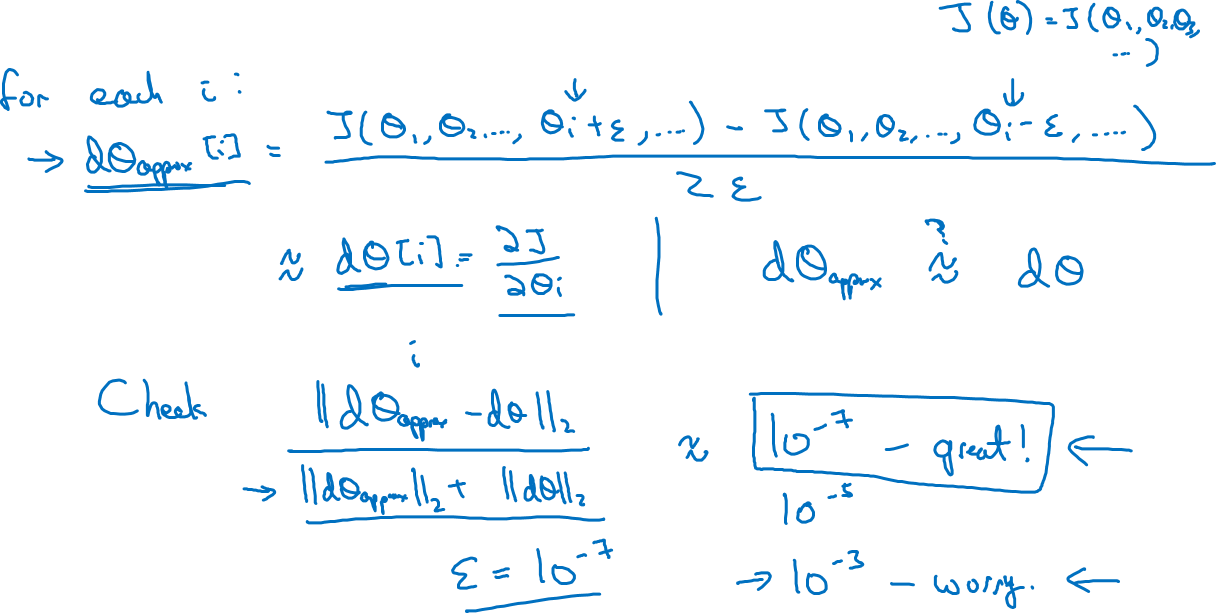 J(θ) = J(θ₁, θ₂, θ₃, ...)
for each i:
→ dθapprox[i] = (J(θ₁, θ₂, ..., θᵢ+ε, ...) - J(θ₁, θ₂, ..., θᵢ-ε, ....)) / 2ε
≈ dθ[i] = ∂J/∂θᵢ | dθapprox ≈? dθ
i
Check ||dθapprox - dθ||₂ / (||dθapprox||₂ + ||dθ||₂) ≈ 10⁻⁷ - great! ←
→
10⁻⁵
ε = 10⁻⁷
→ 10⁻³ - worry. ←